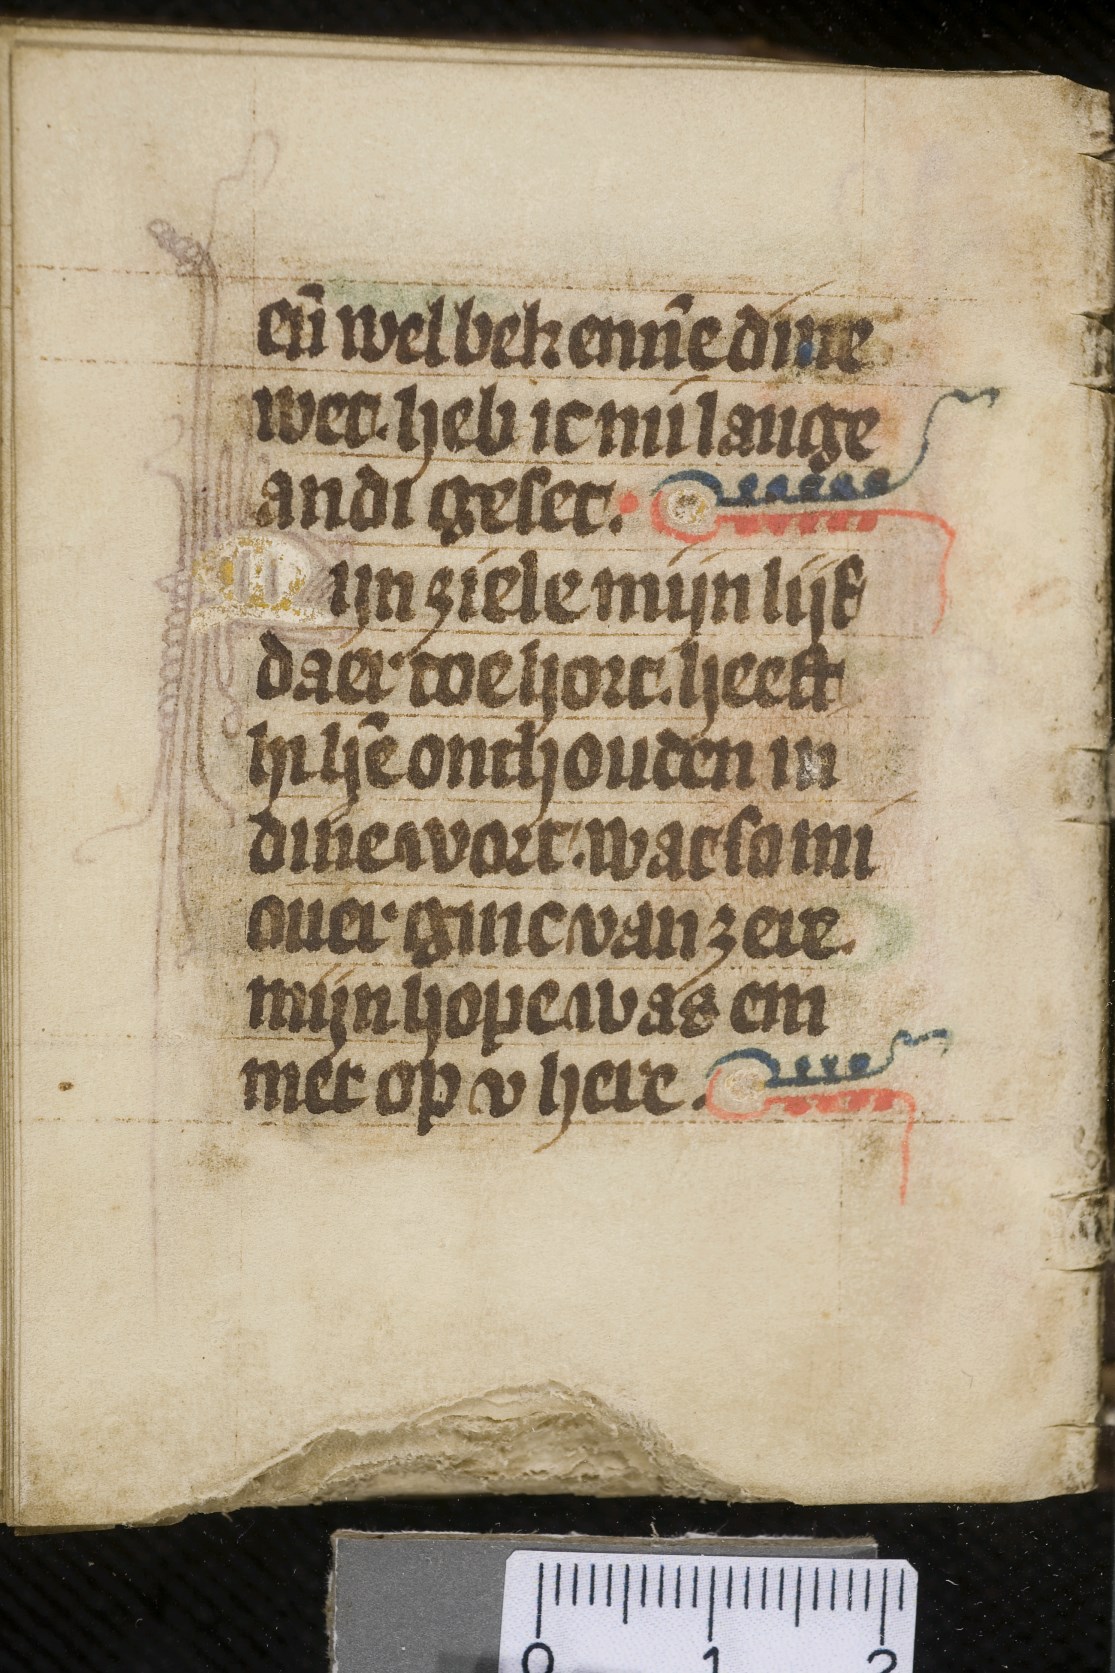 en̄ wel bekenn̄e dine
wet. heb ic mi lange
an di geset.
Mijn ziele mijn lijf
daer toe hort. heeft
hi hē onthouden in
dine wort. wat so mi
ouer ginc van zere.
mijn hope was em
mer op v here.
0 1 2